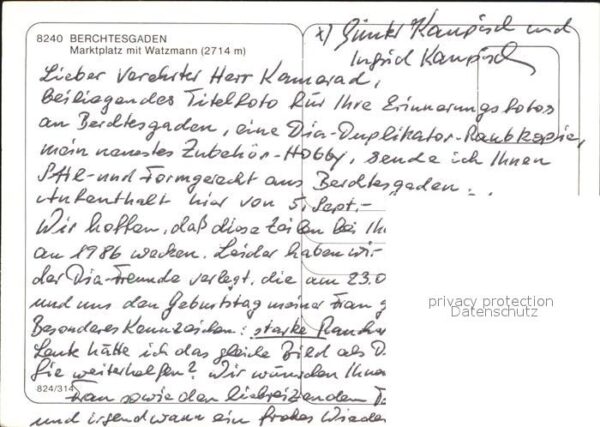 8240 BERCHTESGADEN
Marktplatz mit Watzmann (2714 m)
x) Günter Kampisch und
Ingrid Kampisch
Lieber verehrter Herr Kamerad,
beiliegendes Titelfoto für Ihre Erinnerungsfotos
an Berchtesgaden, eine Dia-Duplikator-Raubkopie,
mein neuestes Zubehör-Hobby, sende ich Ihnen
stil- und formgerecht aus Berchtesgaden.
Aufenthalt hier von 5. Sept.-
Wir hoffen, daß diese Zeilen bei Ih
an 1986 wecken. Leider haben wir
der Dia-Freunde verlegt, die am 23.0
und uns den Geburtstag meiner Frau g
Besonderes Kennzeichen: starke Raucher
Leute hätte ich das gleiche Bild als D
Sie weiterhelfen? Wir wünschen Ihnen
Frau sowie den liebreizenden
und irgendwann ein frohes Wieder
824/314
privacy protection
Datenschutz